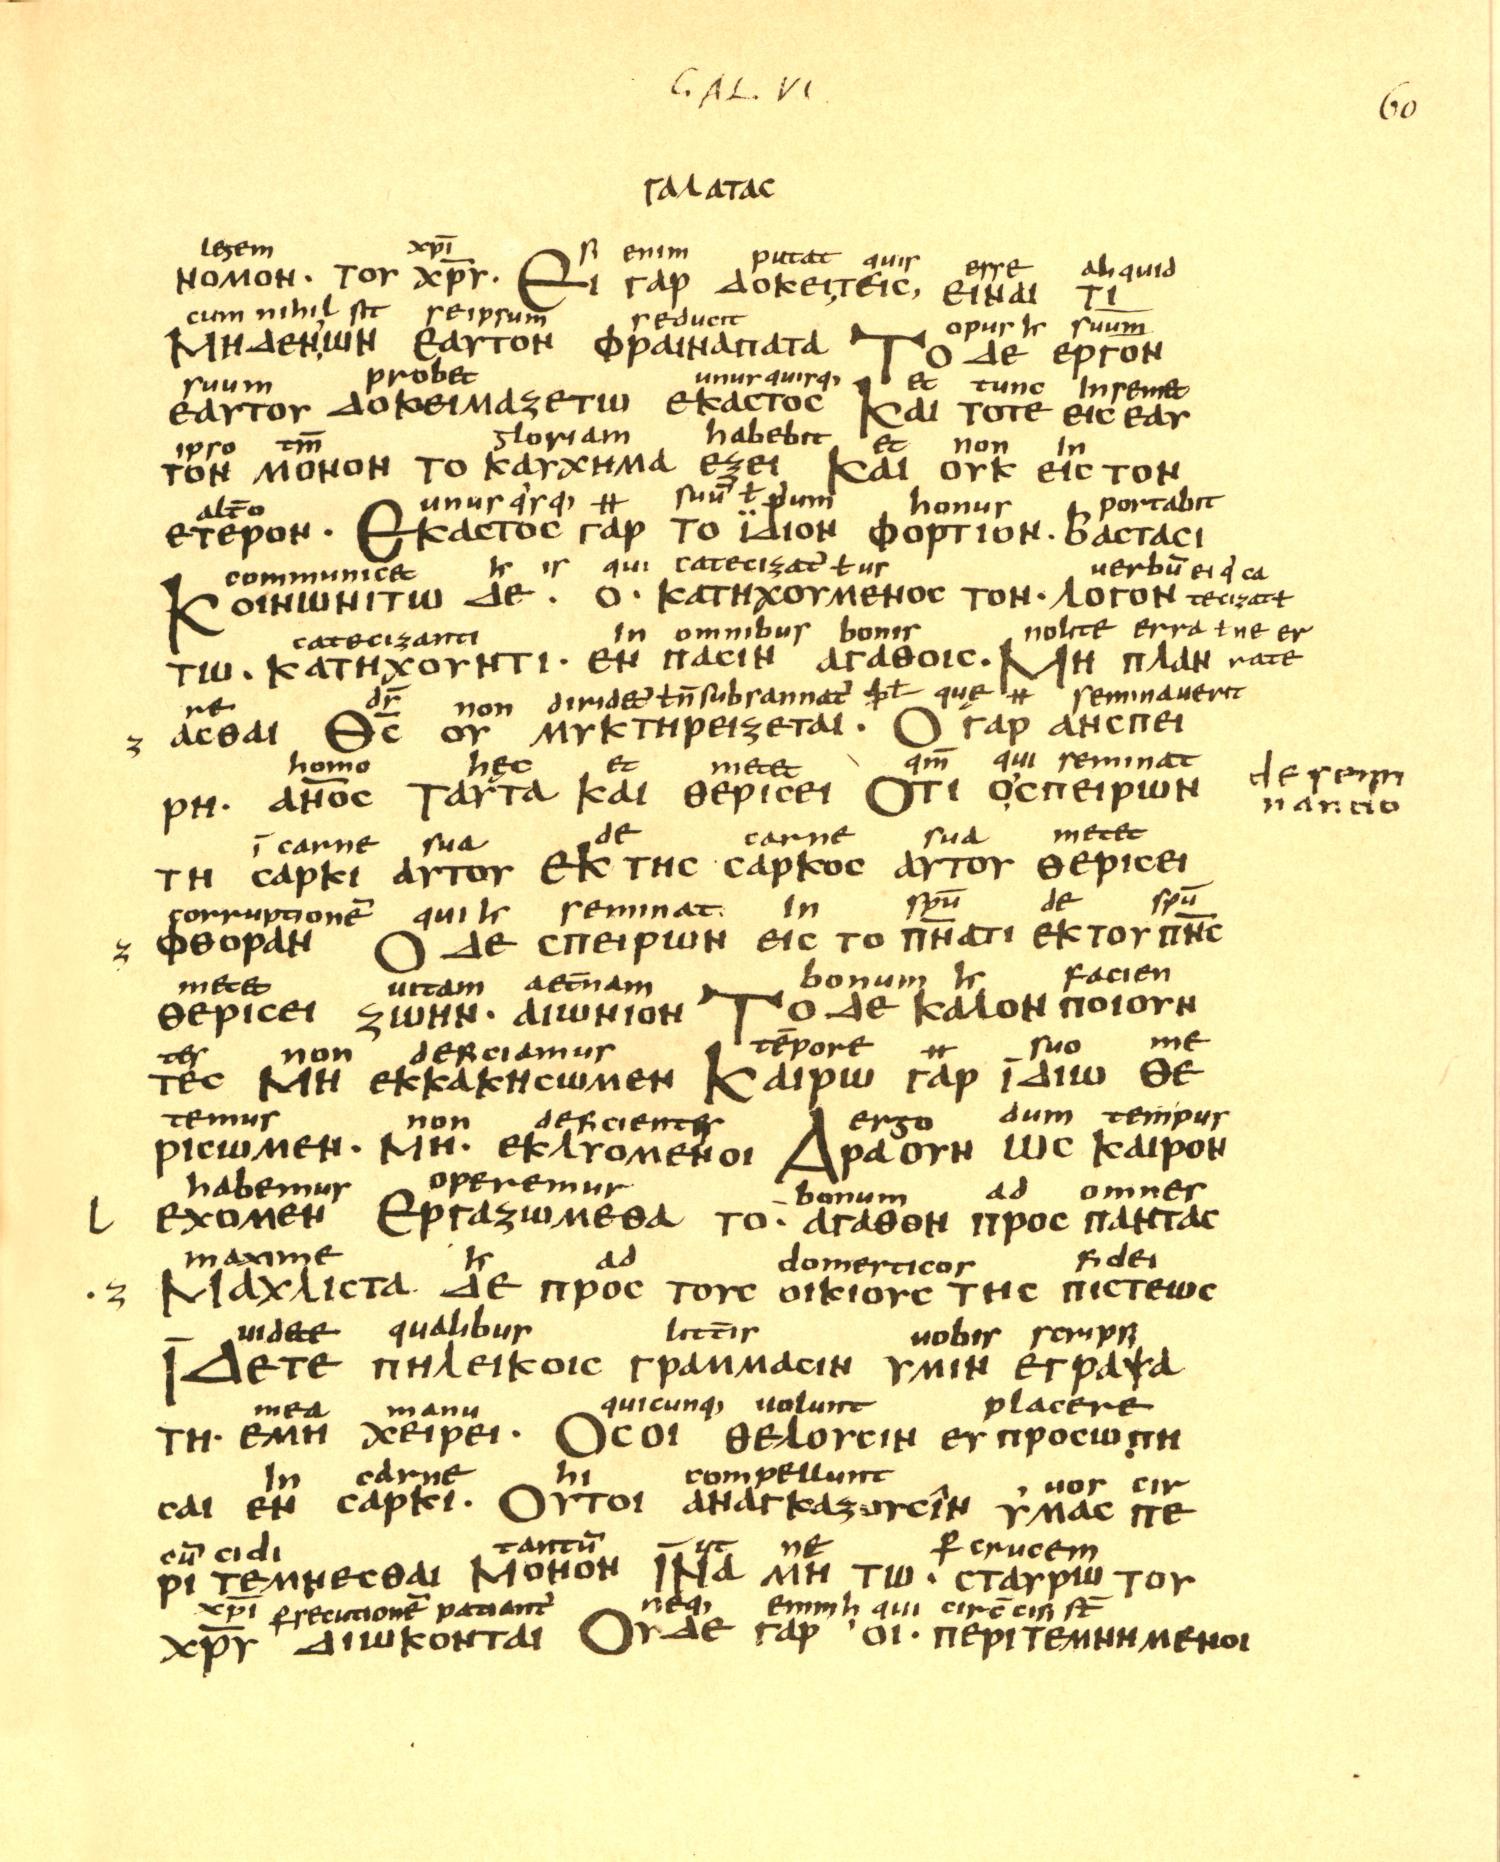 GAL. VI
60
ΓΑΛΑΤΑC
legem xp̄i si enim putat quis esse aliquid
ΝΟΜΟΝ· ΤΟΥ Χ̅Ρ̅Υ· ΕΙ ΓΑΡ ΔΟΚΕΙ,ΤΕΙC, ΕΙΝΑΙ ΤΙ
cum nihil sit seipsum seducit opus h suum
ΜΗΔΕΝ,ΩΝ ΕΑΥΤΟΝ ΦΡΑΙΝΑΠΑΤΑ ΤΟ ΔΕ ΕΡΓΟΝ
suum probet unusquisq; et tunc Insemet
ΕΑΥΤΟΥ ΔΟΚΕΙΜΑΖΕΤΩ ΕΚΑCΤΟC ΚΑΙ ΤΟΤΕ ΕΙC ΕΑΥ
ipso tm̄ gloriam habebit et non In
ΤΟΝ ΜΟΝΟΝ ΤΟ ΚΑΥΧΗΜΑ ΕΞΕΙ ΚΑΙ ΟΥΚ ΕΙC ΤΟΝ
alt̄o unusq'sq; ++ suū ł p'um honus portabit
ΕΤΕΡΟΝ· ΕΚΑCΤΟC ΓΑΡ ΤΟ ΪΔΙΟΝ ΦΟΡΤΙΟΝ· ΒΑCΤΑCΙ
communicet h is qui catecizat' ł us uerbū ei q' ca
ΚΟΙΝΩΝΙΤΩ ΔΕ· Ο· ΚΑΤΗΧΟΥΜΕΝΟC ΤΟΝ· ΛΟΓΟΝ tecizat ł
catecizanti In omnibus bonis nolite erra ł ne er
ΤΩ· ΚΑΤΗΧΟΥΝΤΙ· ΕΝ ΠΑCΙΝ ΑΓΑΘΟΙC· ΜΗ ΠΛΑΝ rate
re dī non diridet' ł n̄ subsannat' que ++ seminauerit
Ζ ΑCΘΑΙ Θ̅C̅ ΟΥ ΜΥΚΤΗΡΕΙΖΕΤΑΙ· Ο ΓΑΡ ΑΝCΠΕΙ
homo hęc et metet qm̄ qui seminat
ΡΗ· ΑΝ̅Ο̅C ΤΑΥΤΑ ΚΑΙ ΘΕΡΙCΕΙ ΟΤΙ Ο,CΠΕΙΡΩΝ
de semi
nantio
ī carne sua de carne sua metet
ΤΗ CΑΡΚΙ ΑΥΤΟΥ ΕΚ ΤΗC CΑΡΚΟC ΑΥΤΟΥ ΘΕΡΙCΕΙ
corruptionē qui h seminat In spū de spū
Ζ ΦΘΟΡΑΝ Ο ΔΕ CΠΕΙΡΩΝ ΕΙC ΤΟ Π̅Ν̅ΑΤΙ ΕΚ ΤΟΥ Π̅Ν̅C
metet uitam aet̄nam bonum h facien
ΘΕΡΙCΕΙ ΖΩΗΝ· ΑΙΩΝΙΟΝ ΤΟ ΔΕ ΚΑΛΟΝ ΠΟΙΟΥΝ
tes non deficiamus tēpore ++ suo me
ΤΕC ΜΗ ΕΚΚΑΚΗCΩΜΕΝ ΚΑΙΡΩ ΓΑΡ ΙΔΙΩ ΘΕ
temus non deficientes ergo dum tempus
ΡΙCΩΜΕΝ· ΜΗ· ΕΚΛΥΟΜΕΝΟΙ ΑΡΑ ΟΥΝ ΩC ΚΑΙΡΟΝ
habemus operemur bonum ad omnes
L ΕΧΟΜΕΝ ΕΡΓΑΖΩΜΕΘΑ ΤΟ· ΑΓΑΘΟΝ ΠΡΟC ΠΑΝΤΑC
maxime h ad domesticos fidei
·Ζ ΜΑΧΛΙCΤΑ ΔΕ ΠΡΟC ΤΟΥC ΟΙΚΙΟΥC ΤΗC ΠΙCΤΕΩC
uidete qualibus litt̄is uobis scripsi
ΙΔΕΤΕ ΠΗΛΕΙΚΟΙC ΓΡΑΜΜΑCΙΝ ΥΜΙΝ ΕΓΡΑΨΑ
mea manu quicunq; uolunt placere
ΤΗ· ΕΜΗ ΧΕΙΡΕΙ· ΟCΟΙ ΘΕΛΟΥCΙΝ ΕΥΠΡΟCΩΠΗ
In carne hi compellunt uos cir
CΑΙ ΕΝ CΑΡΚΙ· ΟΥΤΟΙ ΑΝΑΓΚΑΖΟΥCΙΝ ΥΜΑC ΠΕ
cū cidi tantū ut ne crucem
ΡΙ ΤΕΜΝΕCΘΑΙ ΜΟΝΟΝ ΙΝΑ ΜΗ ΤΩ· CΤΑΥΡΩ ΤΟΥ
xp̄i persecutionē patiant' neq; enim h qui circ̄cisi st̄
Χ̅Ρ̅Υ ΔΙΩΚΟΝΤΑΙ ΟΥΔΕ ΓΑΡ ΟΙ· ΠΕΡΙΤΕΜΝΗΜΕΝΟΙ